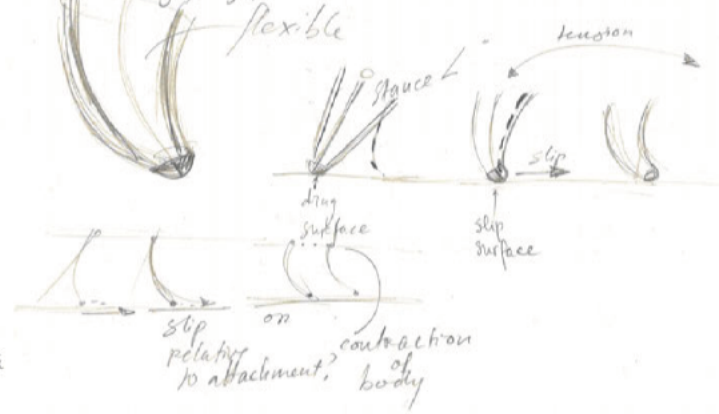 flexible
tension
stance L
slip
drag
surface
slip
surface
slip
relative
to attachment?
on
contraction
of
body